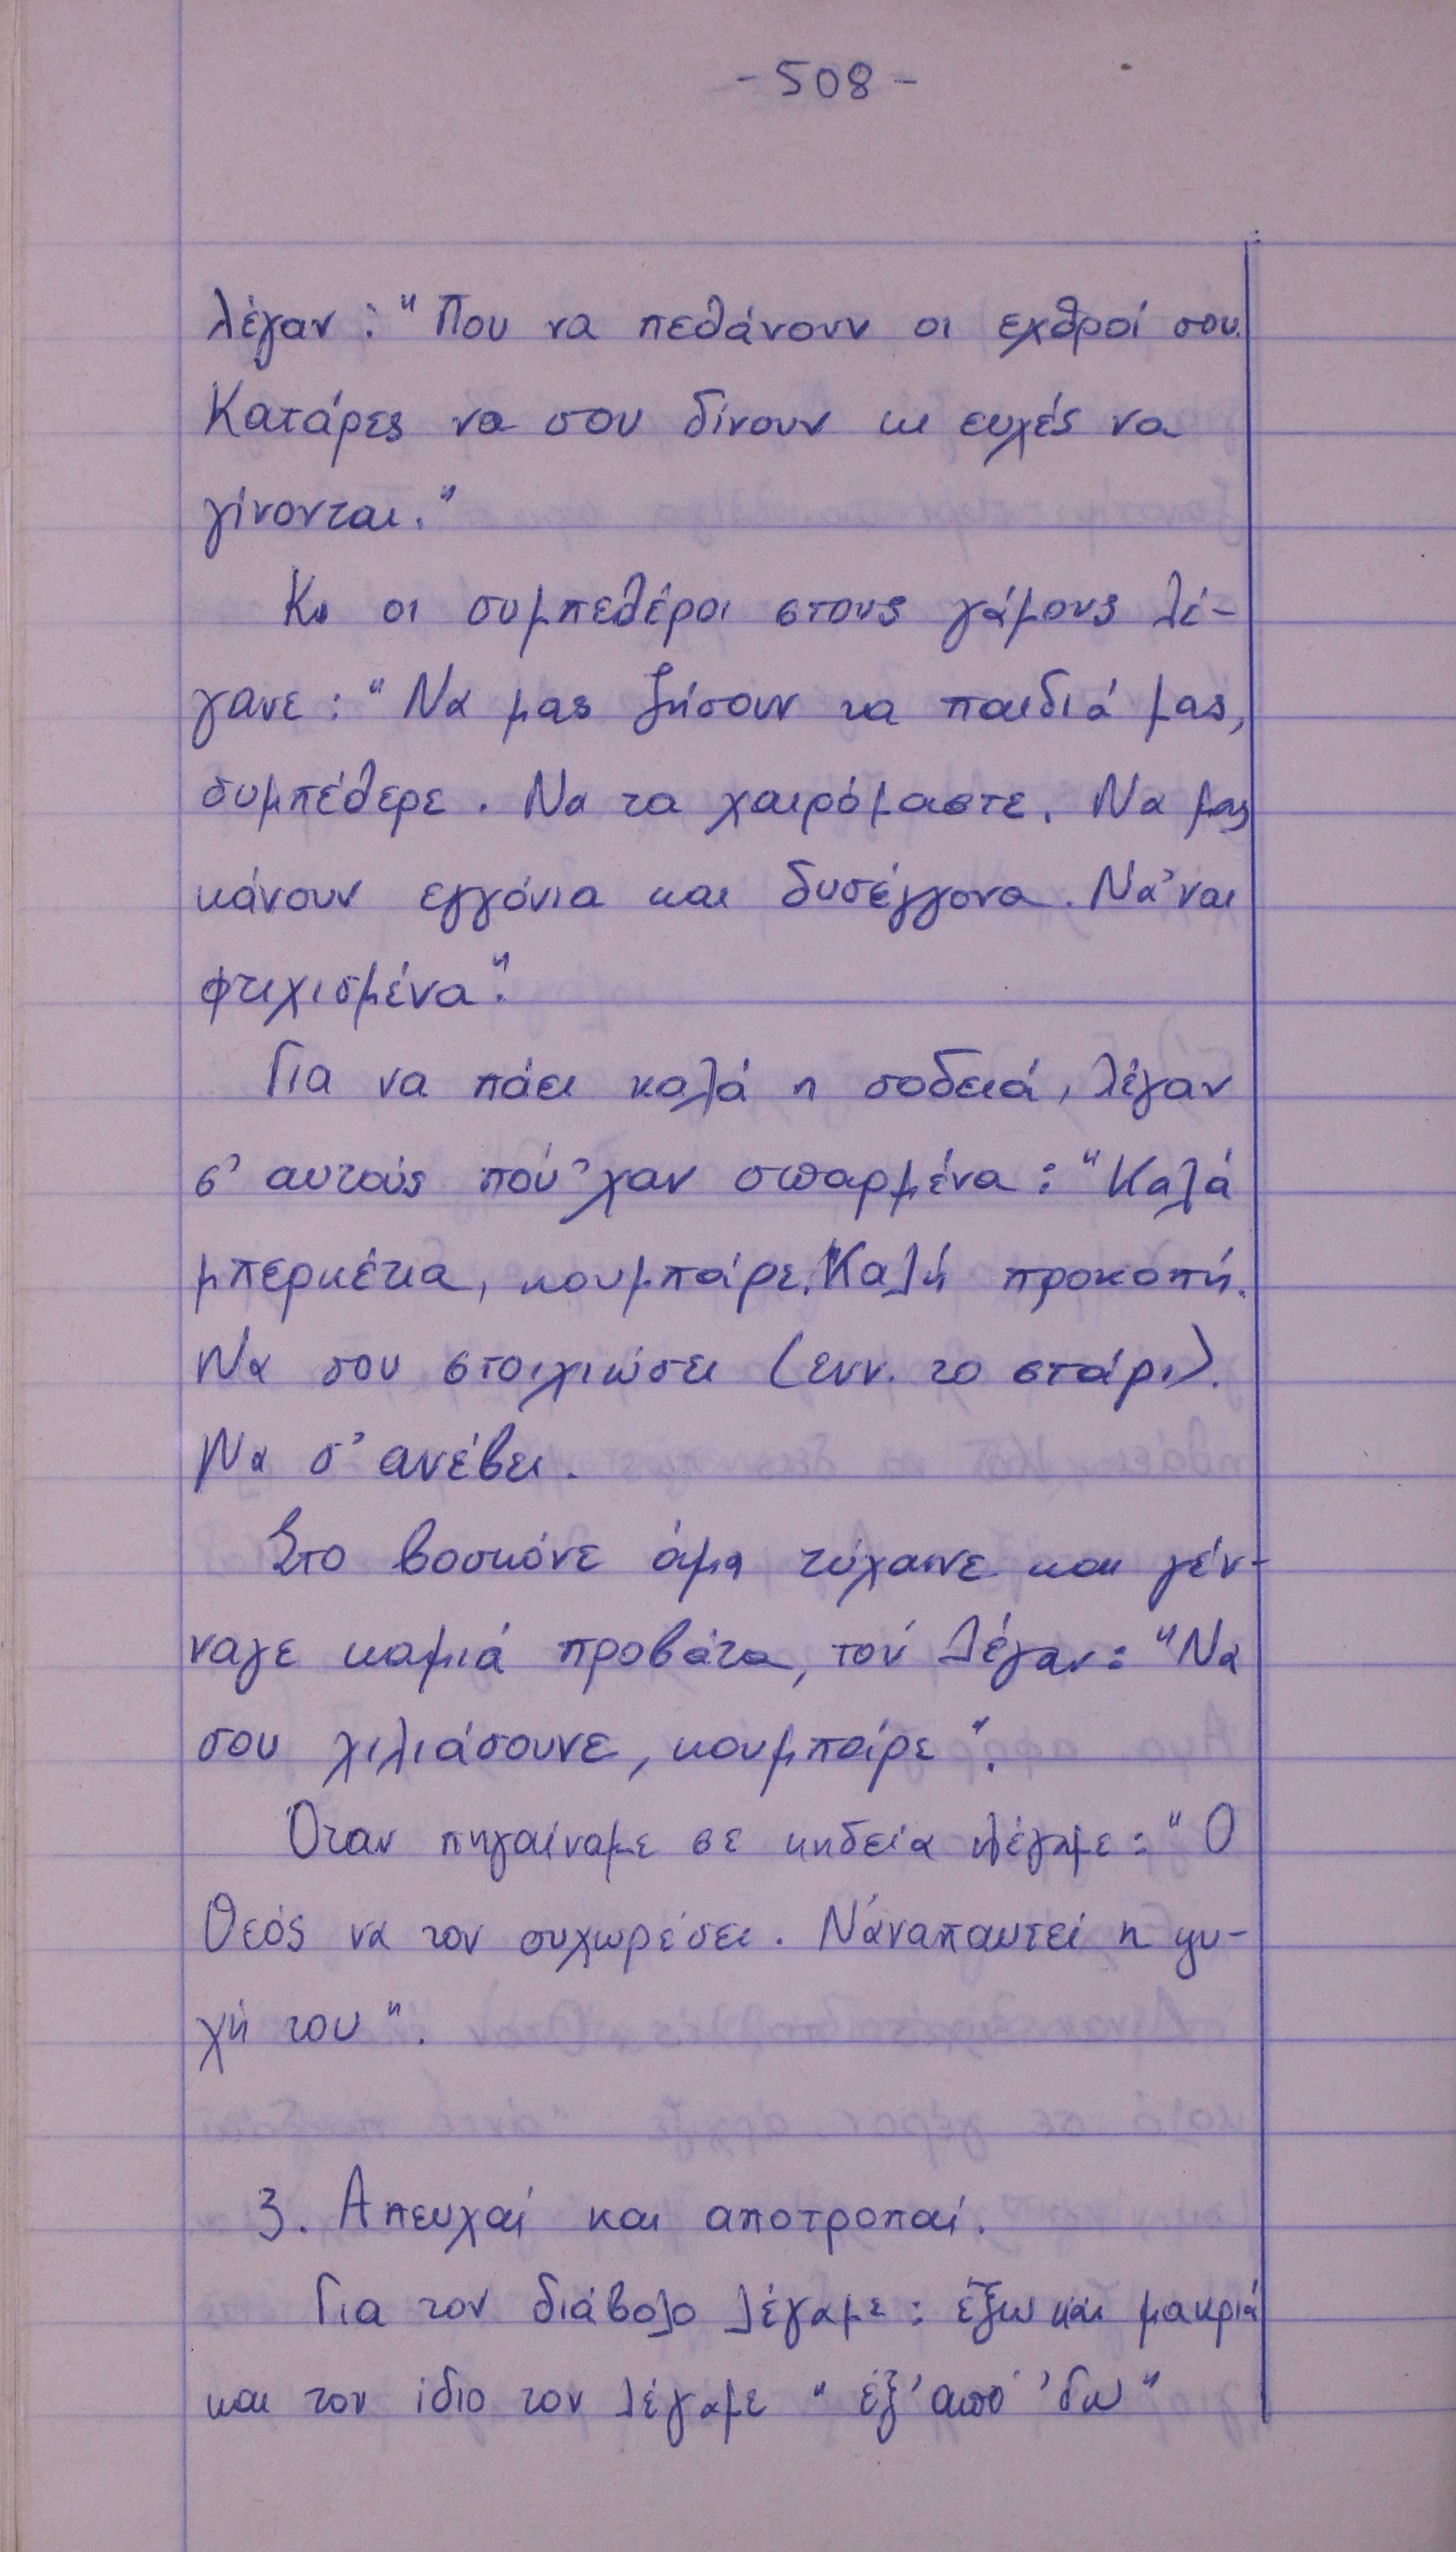 - 508 -
λέγαν: "Που να πεθάνουν οι εχθροί σου.
Κατάρες να σου δίνουν κι ευχές να
γίνονται."
Κι οι συμπεθέροι στους γάμους λέ-
γανε: "Να μας ζήσουν τα παιδιά μας,
συμπέθερε. Να τα χαιρόμαστε. Να μας
κάνουν εγγόνια και δυσέγγονα. Νά'ναι
φτιχισμένα".
Για να πάει καλά η σοδειά, λέγαν
σ' αυτούς πού'χαν σπαρμένα: "Καλά
μπερκέτια, κουμπάρε. Καλή προκοπή.
Να σου στοιχιώσει (ενν. το στάρι).
Να σ' ανέβει.
Στο βοσκόνε άμα τύχαινε και γέν-
ναγε καμιά προβάτα, τού λέγαν: "Να
σου χιλιάσουνε, κουμπάρε".
Όταν πηγαίναμε σε κηδεία λέγαμε: "Ο
Θεός να τον συχωρέσει. Ν'άναπαυτεί η ψυ-
χή του".
3. Απευχαί και αποτροπαί.
Για τον διάβολο λέγαμε: έξω και μακριά
και τον ίδιο τον λέγαμε "έξ' από 'δω"